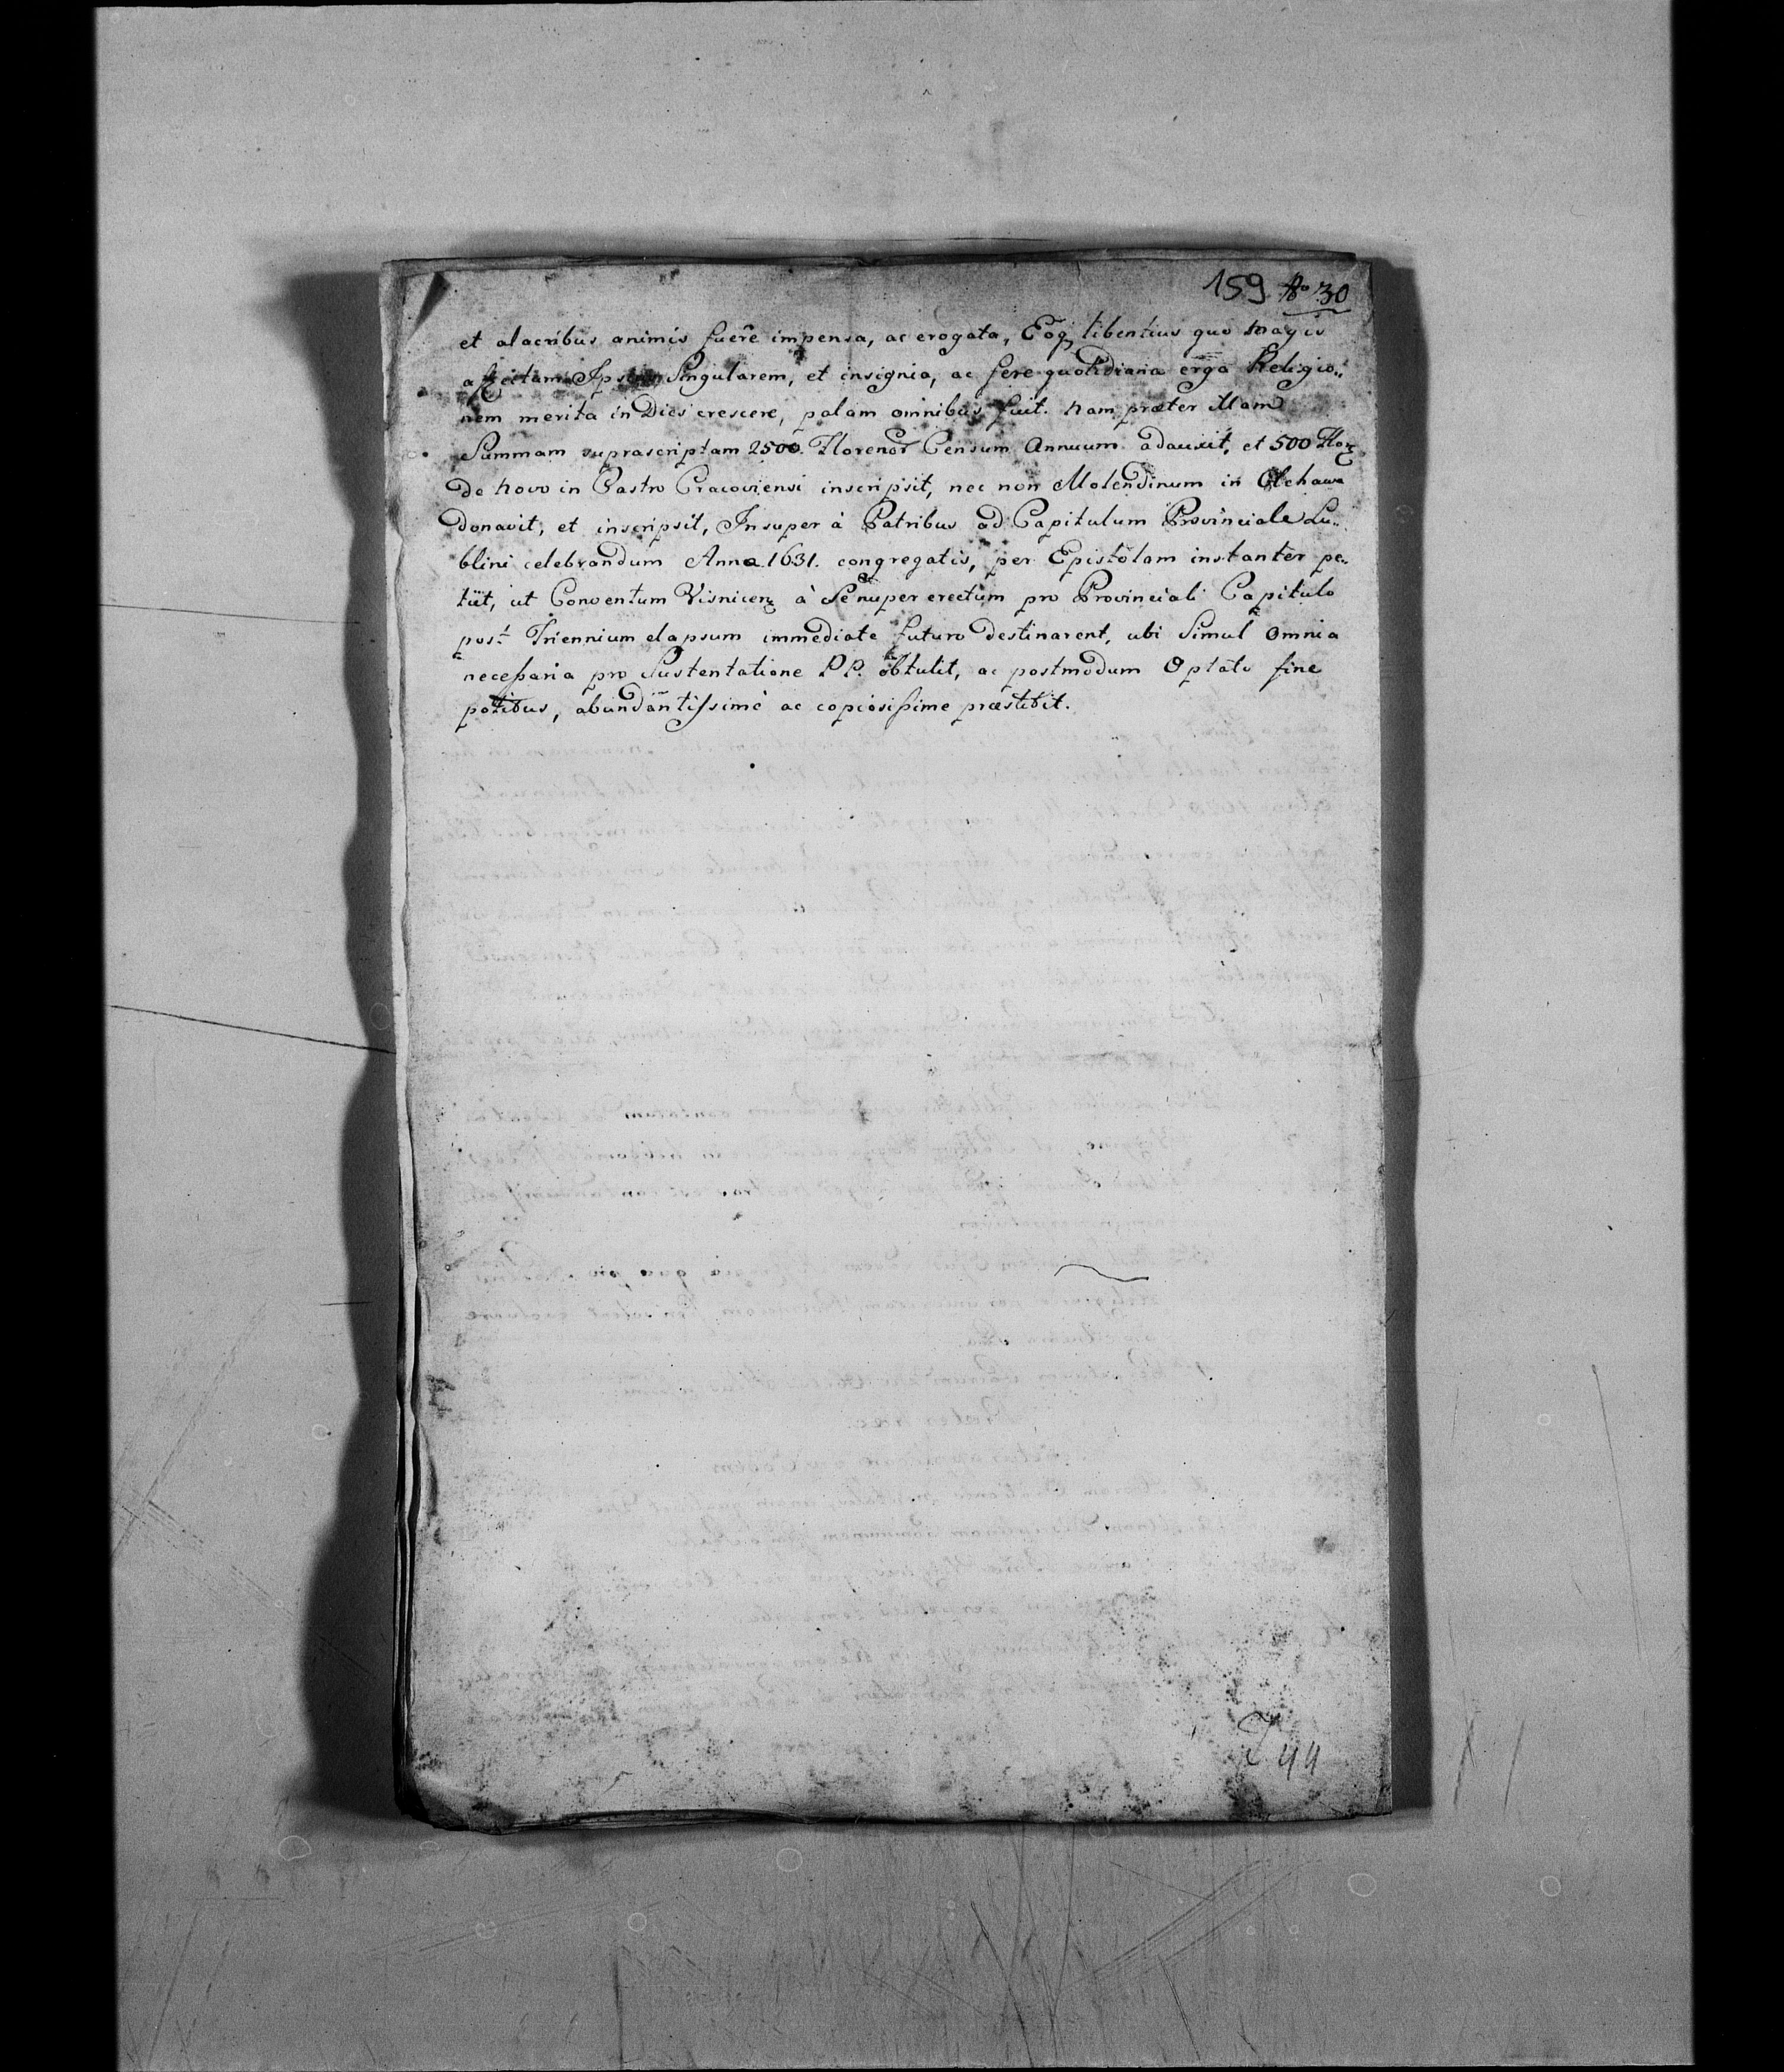 159 No 30
et alacribus animis fuere impensa, ac erogata, Eoq libentius quo magis
affectam Ipsius Singularem, et insignia, ac fere quotidiana erga Religio„
nem merita in Dies crescere, palam omnibus fuit. nam præter illam
Summam suprascriptam 2500. Florenor Censum Annuum adauxit, et 500 Flor
de novo in Castro Cracoviensi inscripsit, nec non Molendinum in Olchawa
donavit, et inscripsit, Insuper à Patribus ad Capitulum Provinciale Lu„
blini celebrandum Anno 1631. congregatis, per Epistolam instanter pe„
tiit, ut Conventum Visnicen à Se nuper erectum pro Provinciali Capitulo
post Triennium elapsum immediate futuro destinarent, ubi Simul Omnia
necessaria pro Sustentatione PP. obtulit, ac postmodum Optato fine
potitus, abundantissimè ac copiosissime præstitit.
44